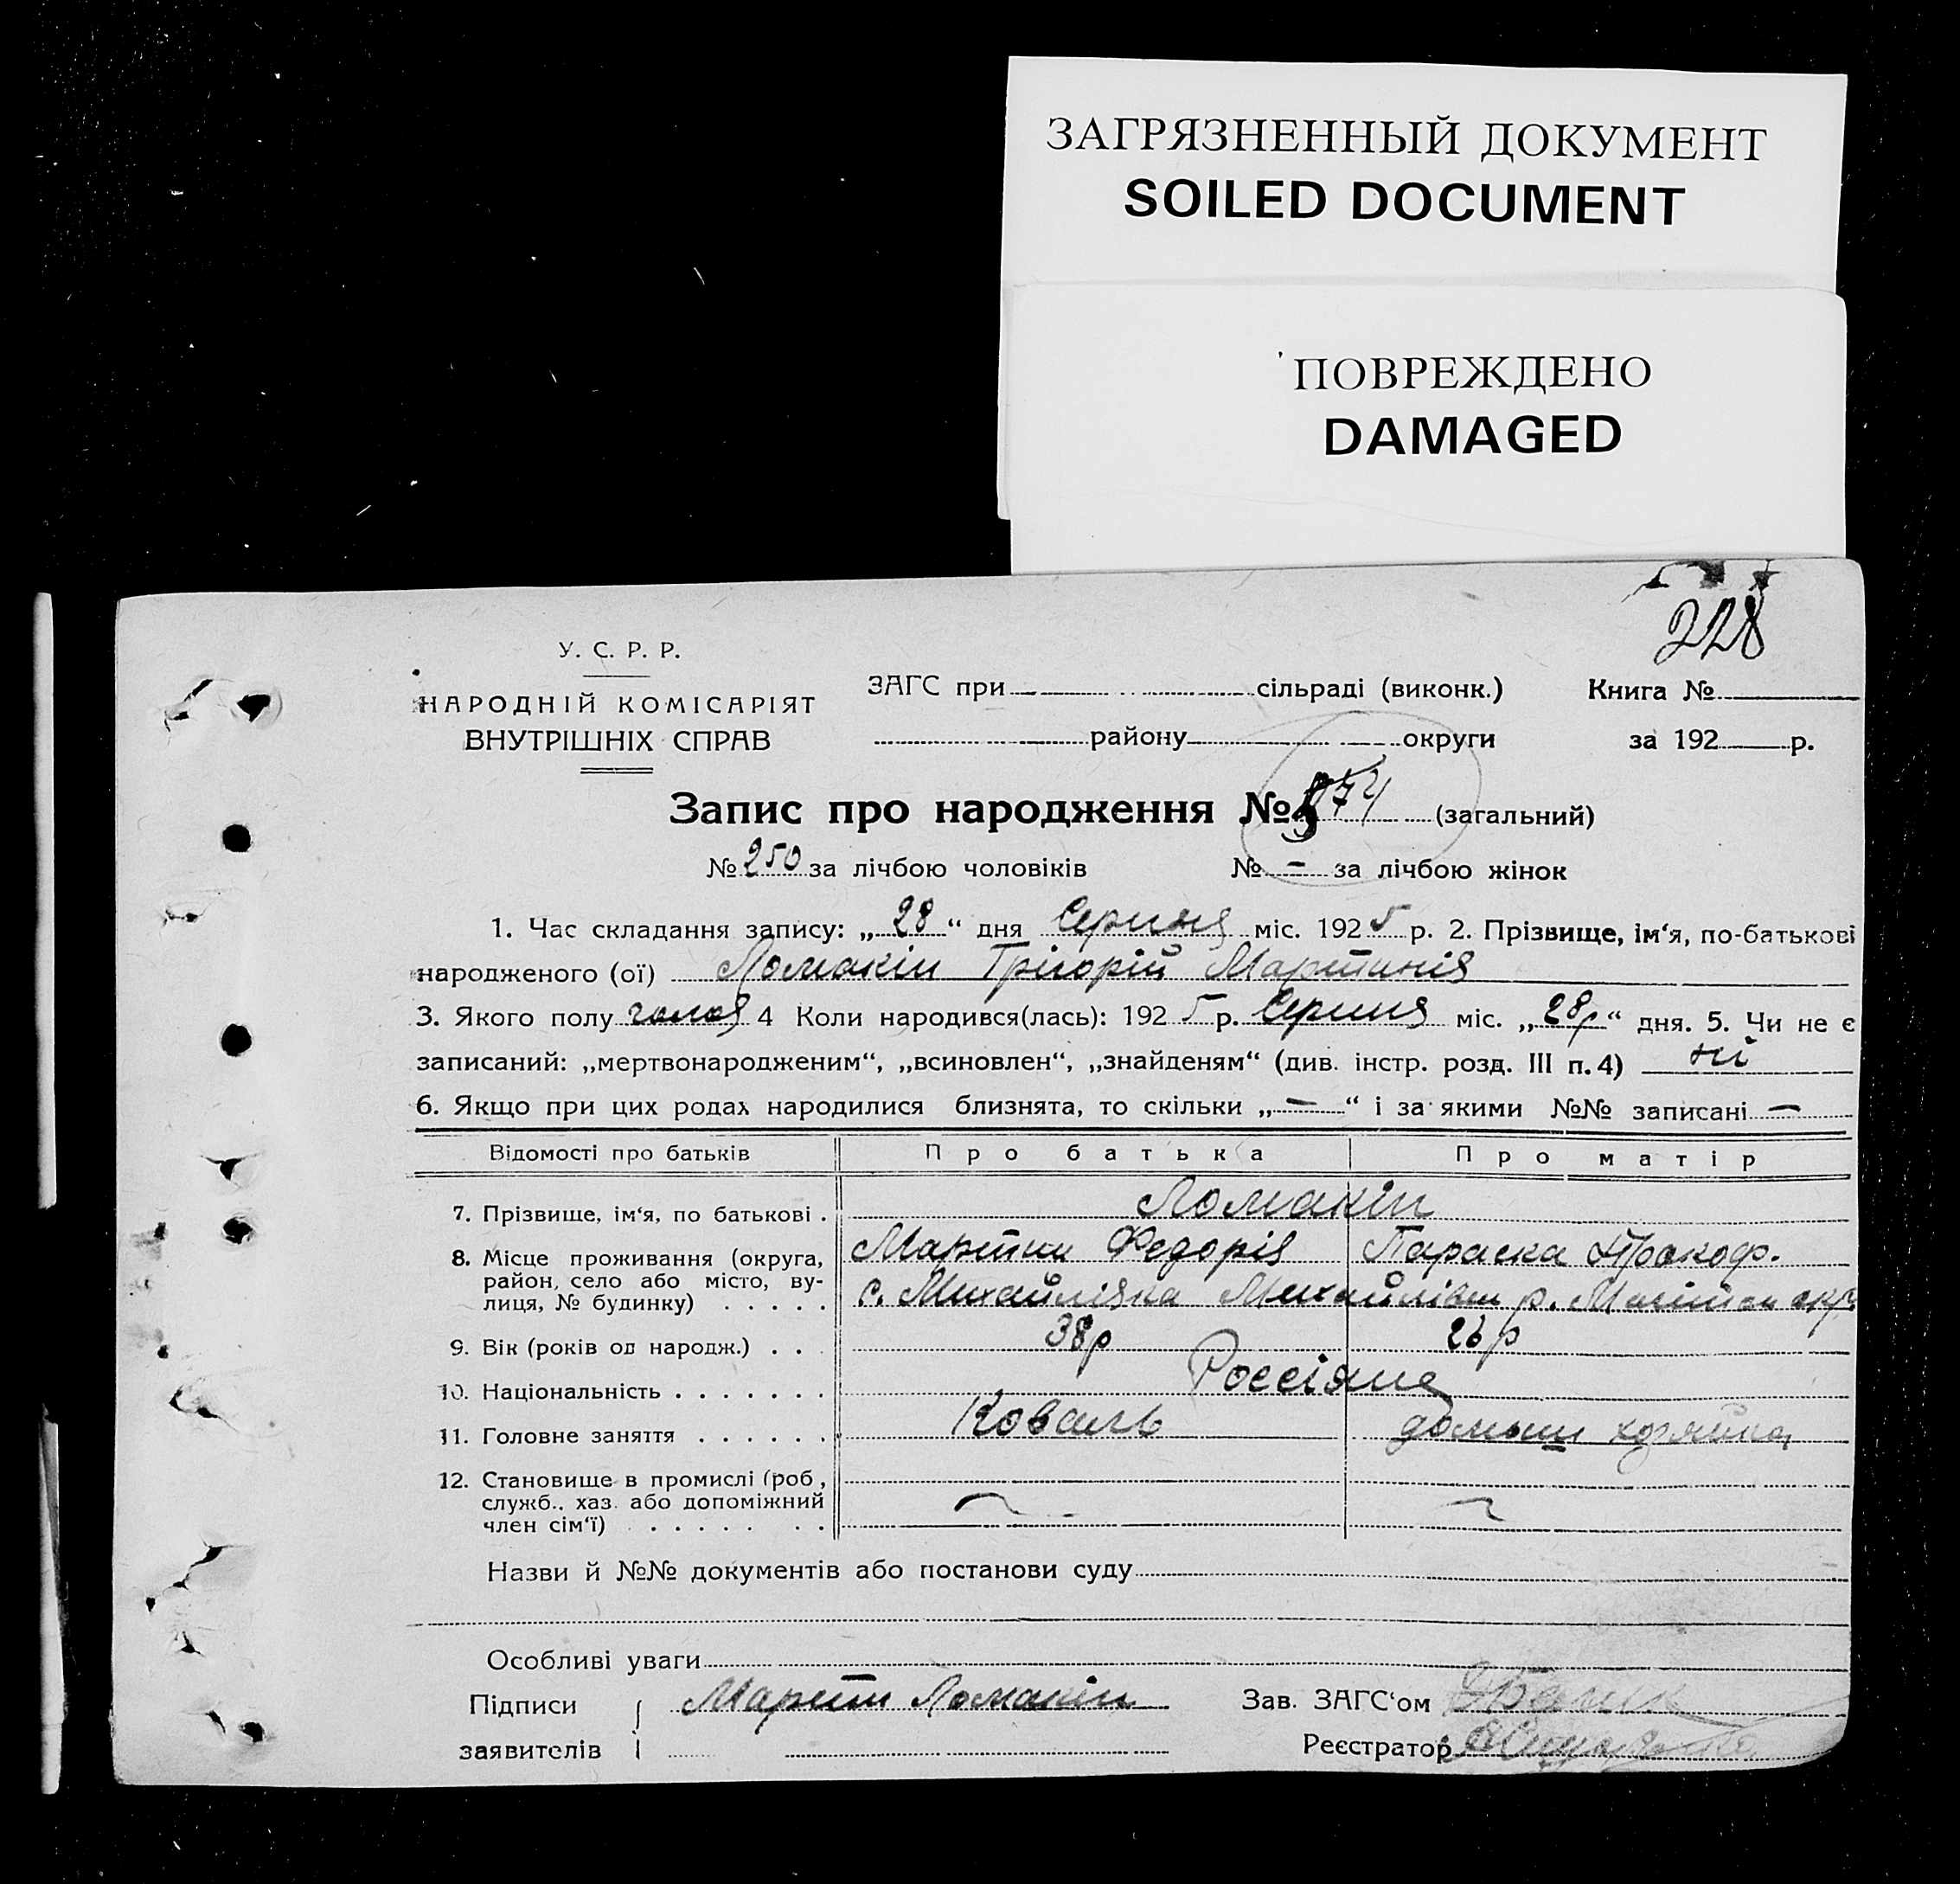 ЗАГРЯЗНЕННЫЙ ДОКУМЕНТ
SOILED DOCUMENT
ПОВРЕЖДЕНО
DAMAGED
228
У. С. Р. Р.
НАРОДНІЙ КОМІСАРІЯТ
ВНУТРІШНІХ СПРАВ
ЗАГС при сільраді (виконк.)
району округи
Книга №
за 192 р.
Запис про народження № (загальний)
№ 250 за лічбою чоловіків № – за лічбою жінок
1. Час складання запису: „28“ дня Серпня міс. 1925 р. 2. Прізвище, ім‘я, по-батькові
народженого (ої) Ломакін Грігорій
3. Якого полу 4 Коли народився(лась): 1925 р. Серпня міс. „28р“ дня. 5. Чи не є
записаний: „мертвонародженим“, „всиновлен“, „знайденям“ (див. інстр. розд. III п. 4) ні
6. Якщо при цих родах народилися близнята, то скільки „—“ і за якими №№ записані —
Відомості про батьків Про батька Про матір
7. Прізвище, ім‘я, по батькові . Ломакін
Мартин Федорів Параска Прокоф.
8. Місце проживання (округа, район, село або місто, ву-
лиця, № будинку) . . . . . с. Михайлівка Михайлівськ р. окр.
9. Вік (років од народж.) . . . 38р 26р
10. Національність . . . . . . . Россіяне
11. Головне заняття . . . . . . Коваль домашн хозяйка
12. Становище в промислі (роб., служб., хаз. або допоміжний
член сім‘ї) . . . . . . .
Назви й №№ документів або постанови суду
Особливі уваги
Підписи Мартин Ломакін Зав. ЗАГС‘ом
заявителів Реєстратор